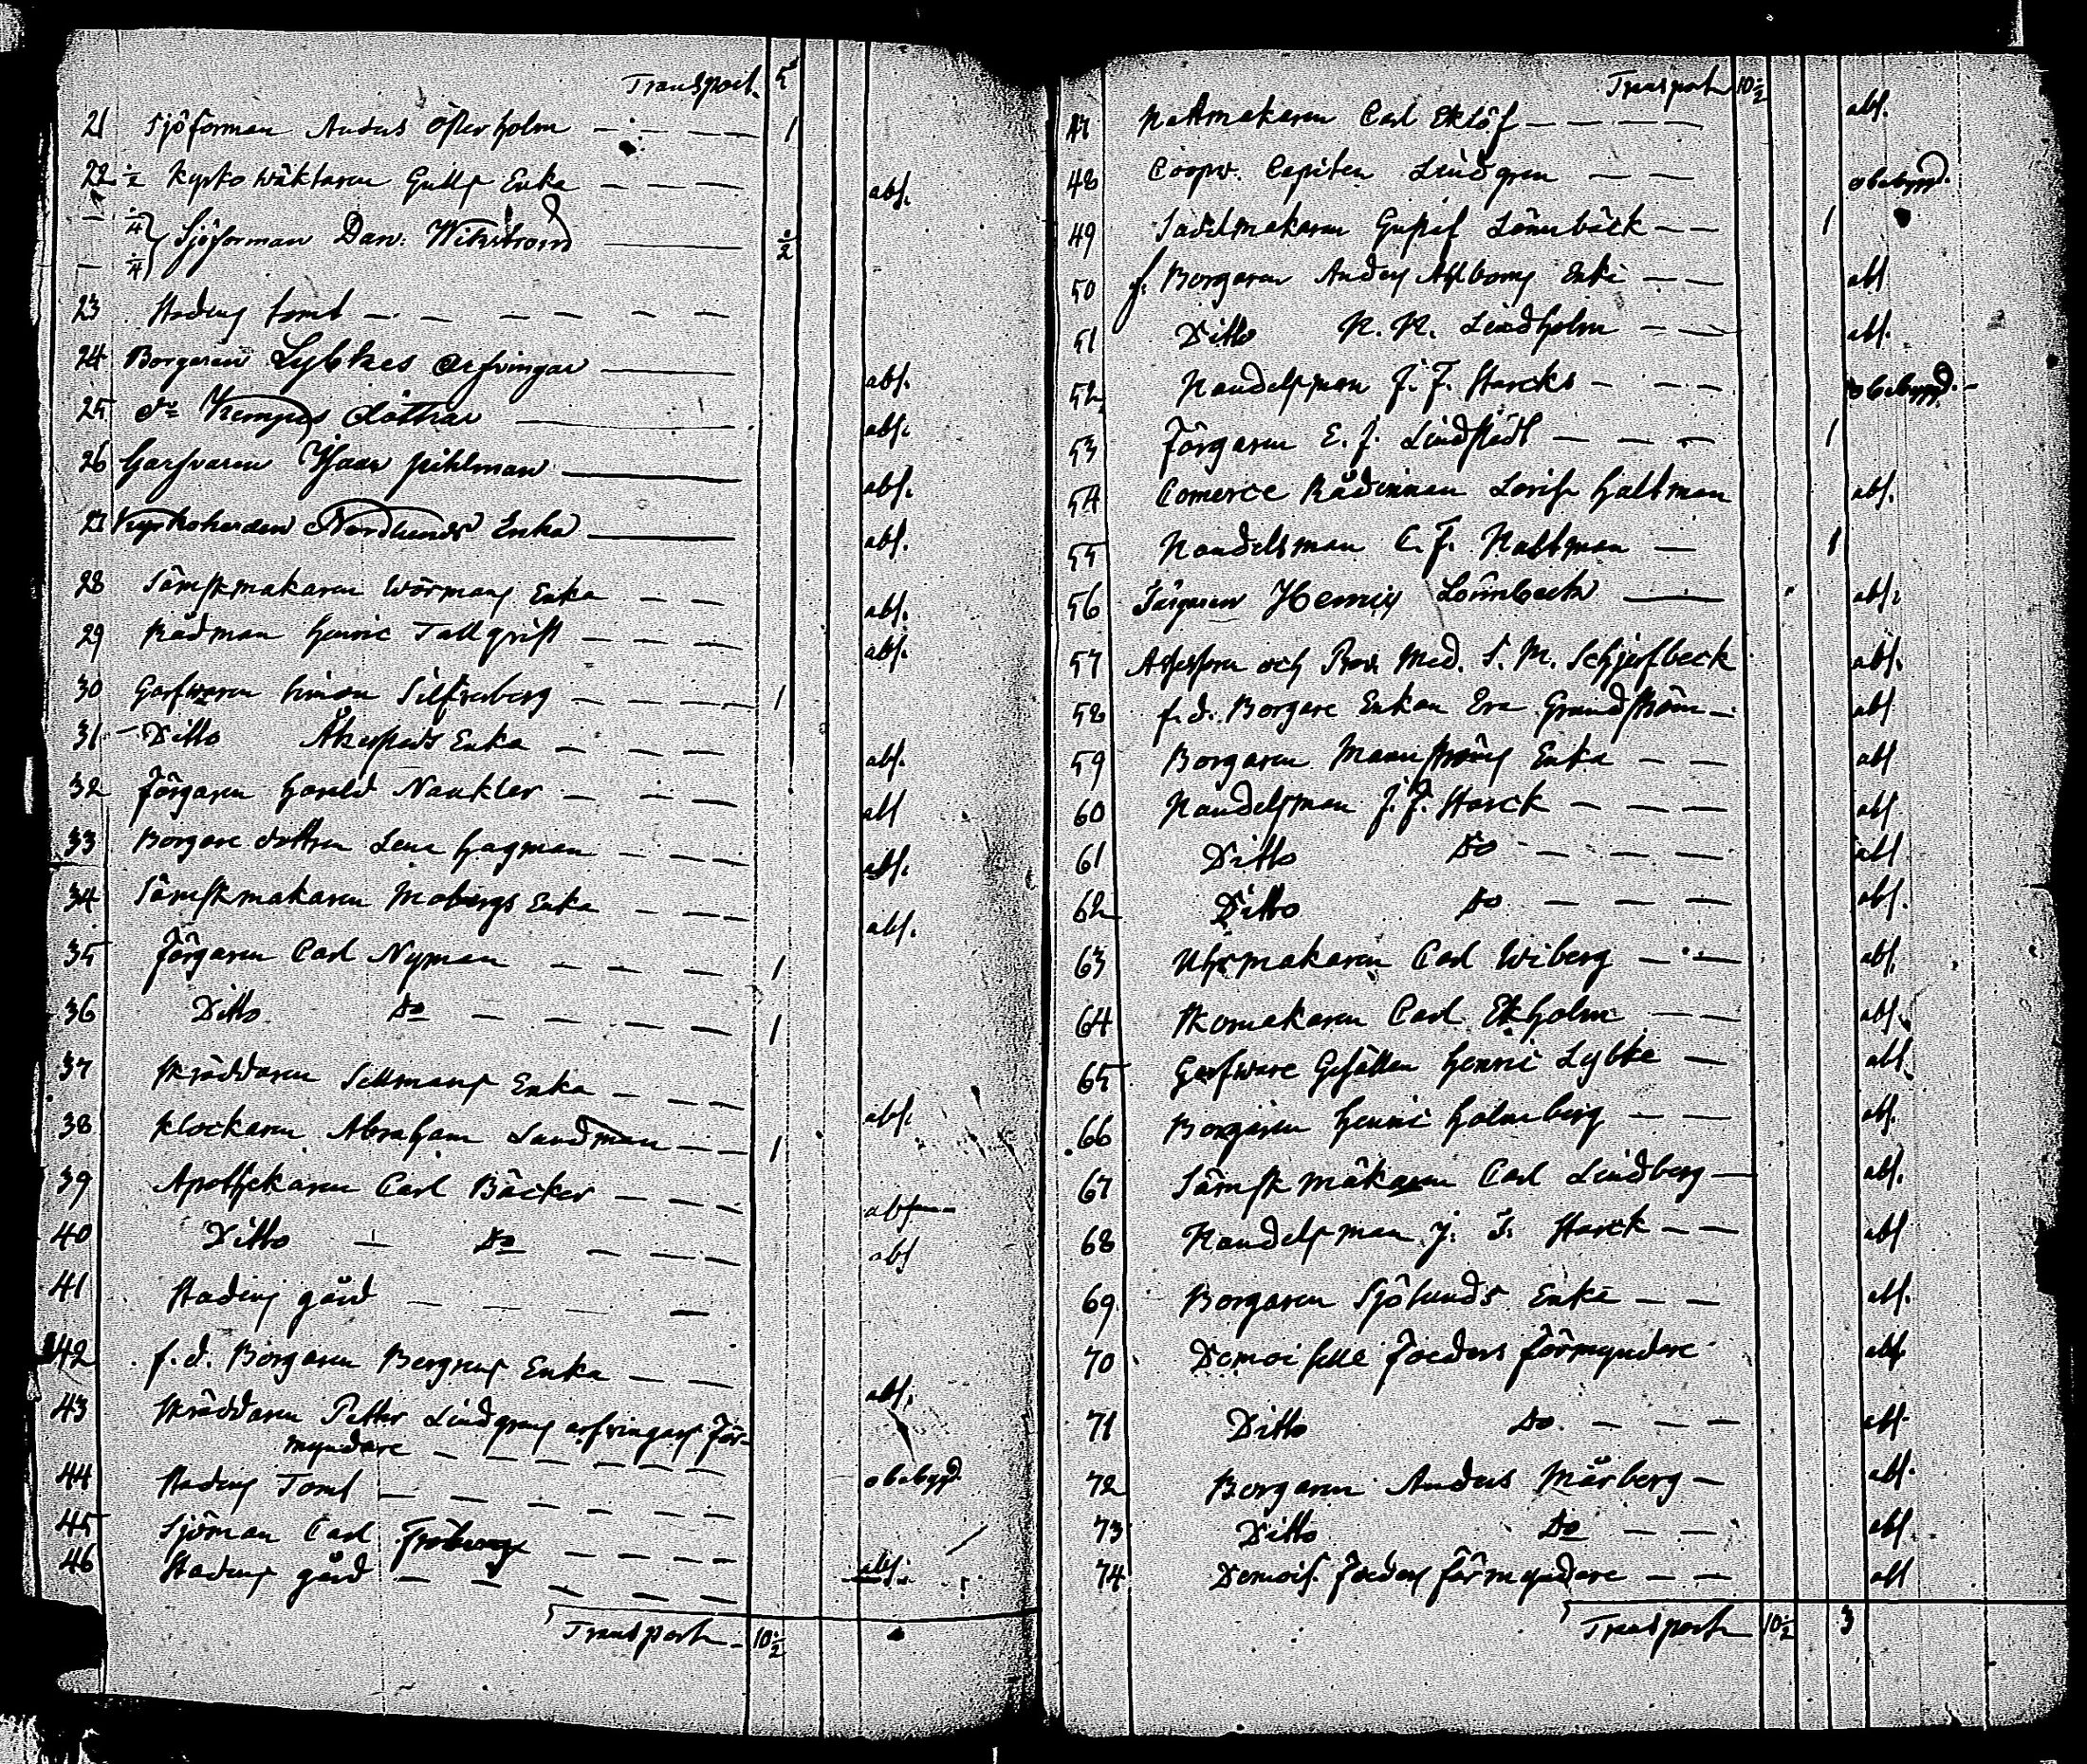 Transport. 5
21 Sjöforman Anders Österholm — — — — 1
22. ½ Kyrko wäktaren Gulls Enka — — — abs.
— ¼ } Sjöforman Dan: Wikström — ½
— ¼
23 Stadens tomt — — — — — —
24 Borgaren Lybkes Arfvingar — abs.
25 do Kempes döttrar — abs.
26 Garfvaren pihlman — abs.
27 Kyrkoherden Nordlunds Enka — abs.
28 Sämskmakaren Wörmans Enka — — abs.
29 Rådman Henric Tallqvist — — — abs.
30 Garfwaren Simon Silfverberg — — — — 1
31 Ditto Åkerfelds Enka — — — abs.
32 Färgaren Harald Naukler — — — abs
33 Borgare dottren Lena Hagman — — — abs.
34 Sämskmakaren Mobergs Enka — — — abs.
35 Färgaren Carl Nyman — — — — 1
36 Ditto Do — — — — — 1
37 Skräddaren Sellmans Enka — — — abs.
38 Klockaren Abraham Sandman — — 1
39 Apothekaren Carl Bäcker — — — abs
40 Ditto — Do — — — abs
41 Stadens gård — — — —
42 f.d. Borgaren Bergens Enka — — — abs.
43 Skräddaren Petter Lindgrens arfvingars För-
myndare — — — — — —
44 Stadens Tomt — — — — — — obebygd.
45 Sjöman Carl Fröberg — — — —
46 Stadens gård — — — — — abs.
Transport — 10½
Transport 10½
47 Hattmakaren Carl Eklöf — — — — — abs.
48 Coopv. Capiten Lindgren — — obebygd.
49 Sadelmakaren Gustaf Lönnbäck — — 1
50 f. Borgaren Anders Ahlboms Enka — — abs
51 Ditto N. N. Lindholm — — abs.
52 Handelsman J. F. Starcks — — — obebygd. —
53 Färgaren E. J. Lindstedt — — — 1
54 Comerce Rådinnan Lovisa Haltman abs.
55 Handelsman C. F. Haltman — 1
56 Färgaren Henric Lönnbeck — abs.
57 Assessoren och Prov. Med. S. M. Schjerfbeck abs.
58 f.d. Borgare Enkan Eva Grandström — abs
59 Borgaren Manströms Enka — — abs
60 Handelsman J. F. Starck — — — abs
61 Ditto Do — — — abs
62 Ditto Do — — — abs.
63 Uhrmakaren Carl Wiberg — — abs.
64 Skomakaren Carl Ekholm — — abs.
65 Garfware Gesällen Henric Lybke — abs.
66 Borgaren Henric Holmberg — — abs.
67 Sämsk makaren Carl Lindberg — abs.
68 Handelsman J. F. Starck — — abs
69 Borgaren Sjölunds Enka — — abs.
70 Demoiselle Foeders Förmyndare abs
71 Ditto Do — — — abs
72 Borgaren Anders Mårberg — abs.
73 Ditto Do — — abs.
74 Demois. Foeders förmyndare — — abs
Transport 10½ 3